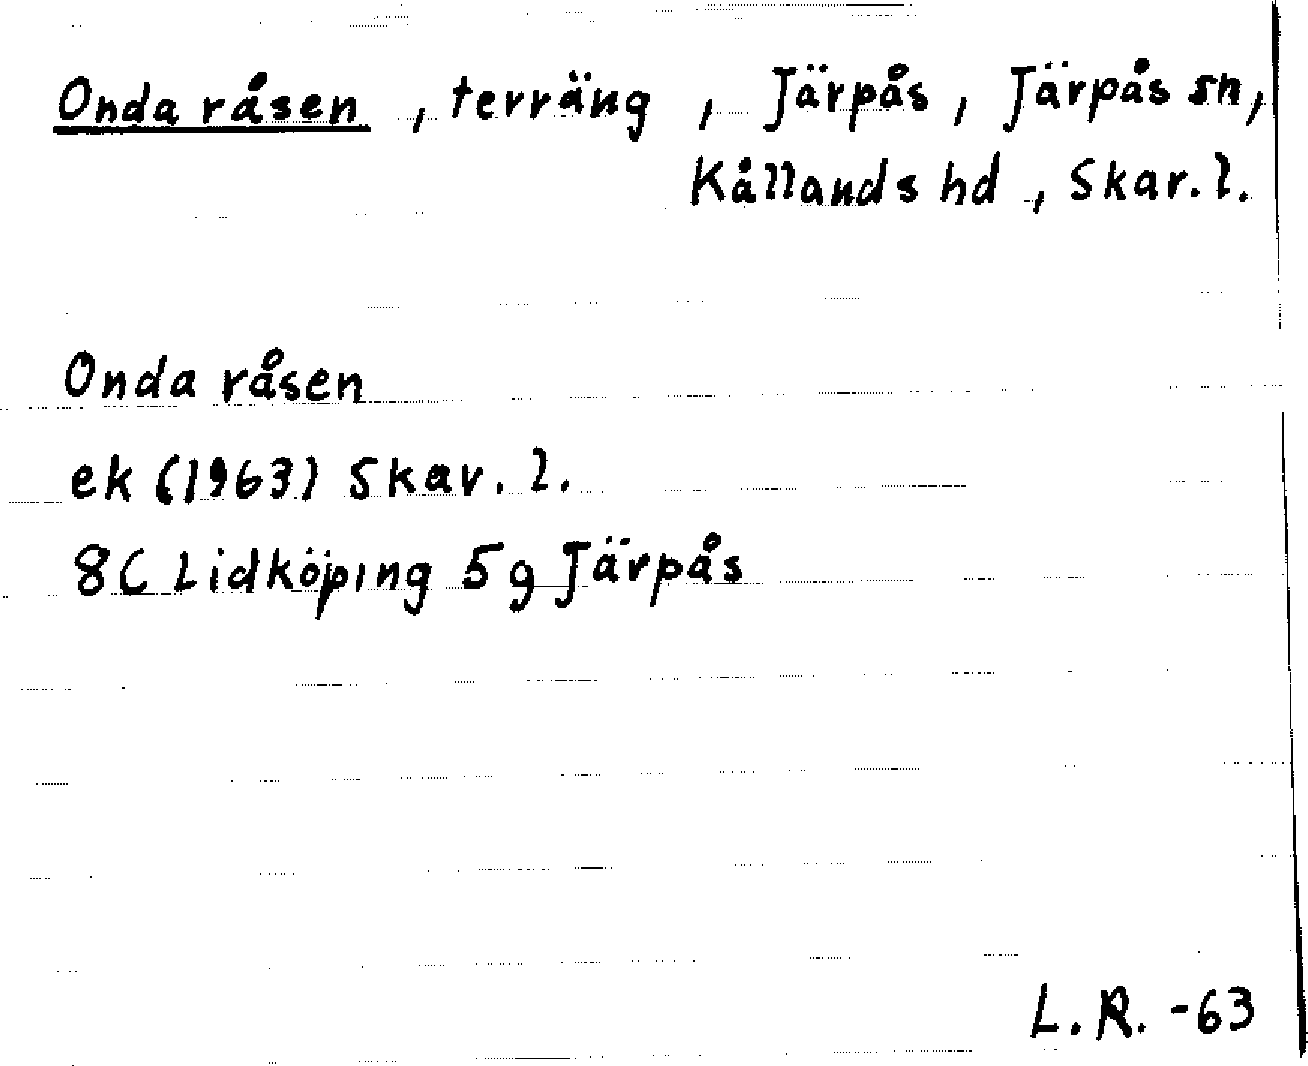 Onda råsen , terräng , Järpås , Järpås sn,
Kållands hd , Skar. l.
Onda råsen
ek (1963) Skar. l.
8C Lidköping 5g Järpås
L.R. -63